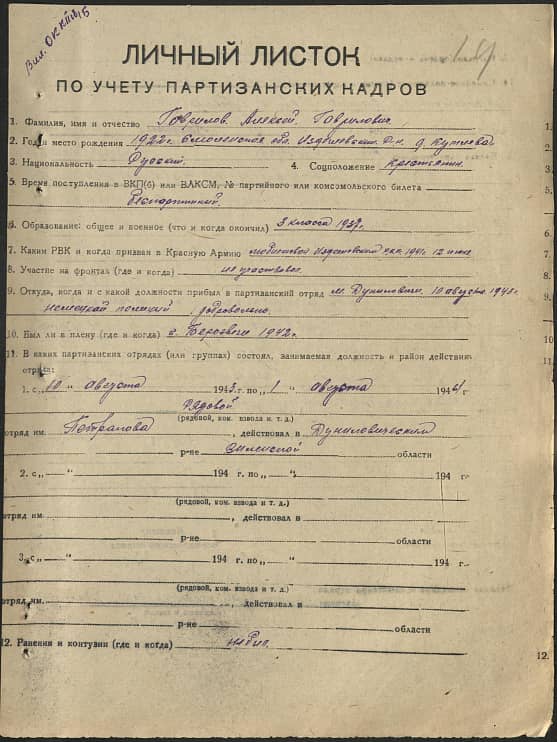 Вил. Октябрь
ЛИЧНЫЙ ЛИСТОК
ПО УЧЕТУ ПАРТИЗАНСКИХ КАДРОВ
1. Фамилия, имя и отчество Гаврилов Алексей Гаврилович
2. Год и место рождения 1922 г. Смоленская обл. Издешковский р-н. д.
3. Национальность Русский. 4. Соцположение крестьянин.
5. Время поступления в ВКП(б) или ВЛКСМ, № партийного или комсомольского билета
Беспартийный.
6. Образование: общее и военное (что и когда окончил) 3 класса 1937 г.
7. Каким РВК и когда призван в Красную Армию РВК 1941 г. 12
8. Участие на фронтах (где и когда) не участвовал.
9. Откуда, когда и с какой должности прибыл в партизанский отряд м. Дуниловичи. 10 августа 1943 г.
немецкой полиции добровольно.
10. Был ли в плену (где и когда) 1942 г.
11. В каких партизанских отрядах (или группах) состоял, занимаемая должность и район действия
отряда:
1. с „10 “ августа 1943 г. по „1 “ августа 1944 г
Рядовой
(рядовой, ком. взвода и т. д.)
отряд им. , действовал в Дуниловическом
р-не Вилейской области
2. с „ “ 194 г. по „ “ 194 г.
(рядовой, ком. взвода и т. д.)
отряд им. , действовал в
р-не области
3. с „ “ 194 г. по „ “ 194 г.
(рядовой, ком. взвода и т. д.)
отряд им. , действовал в
р-не области
12. Ранения и контузии (где и когда) не был.
12.